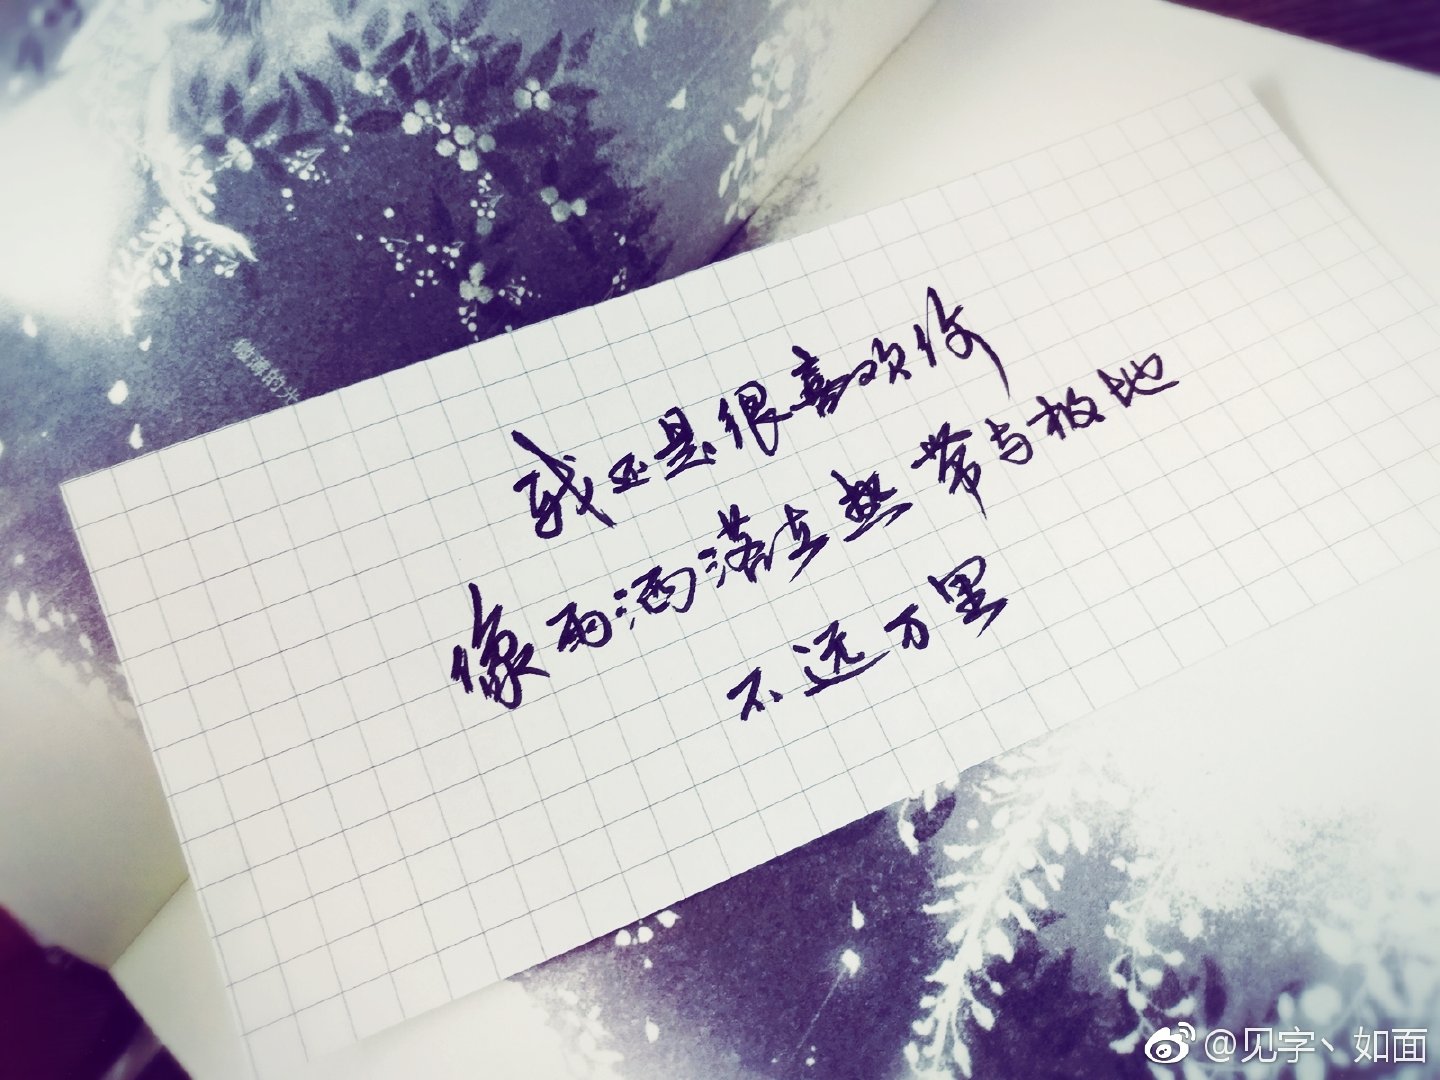 我还是很喜欢你
像雨洒落在热带与极地
不远万里
@见字丶如面